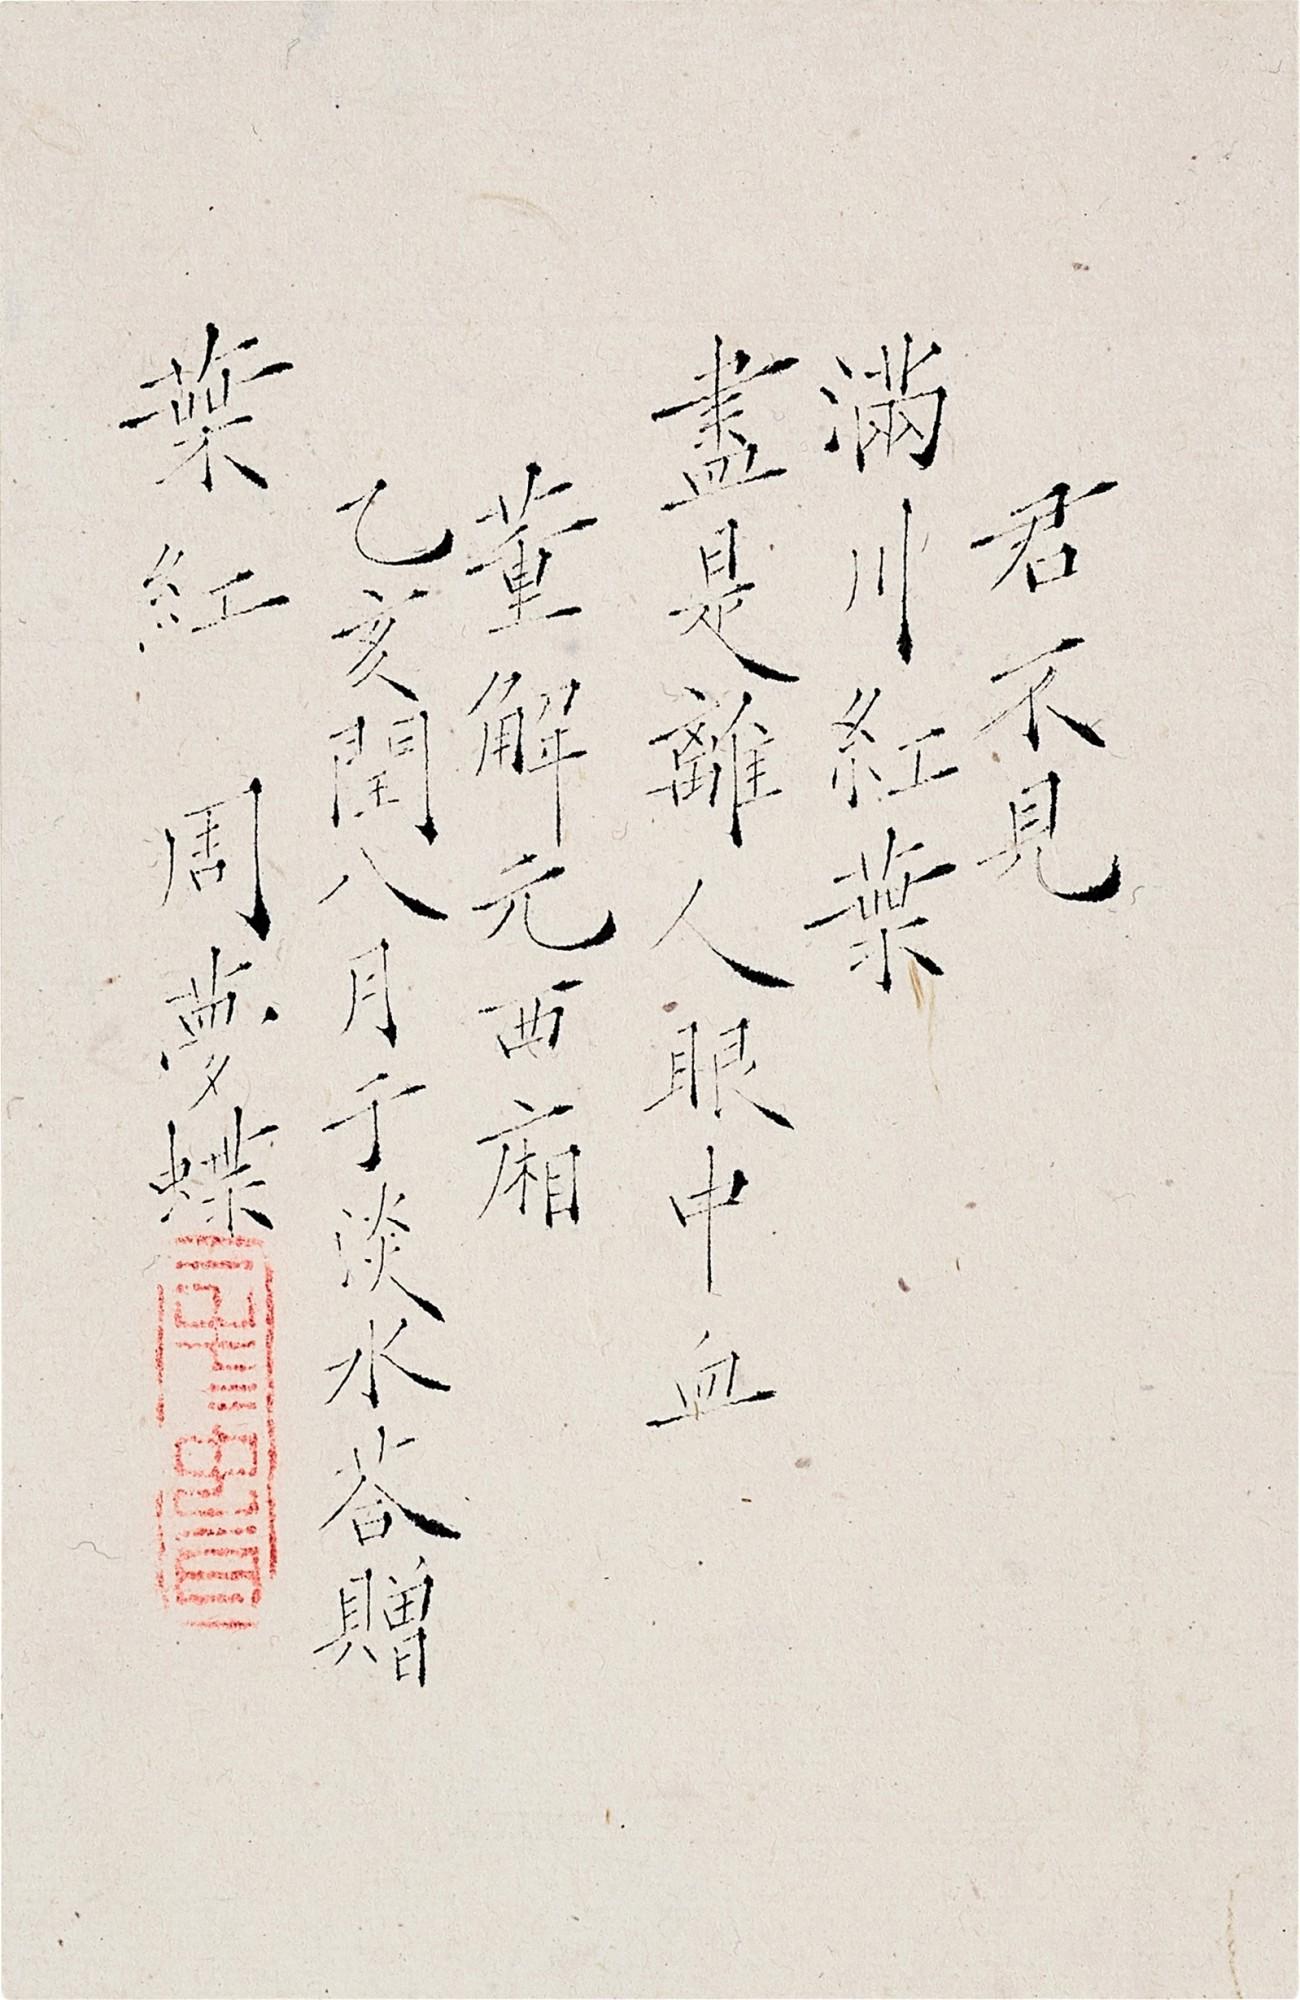 君不見
滿川紅葉
盡是離人眼中血
董解元西廂
乙亥閏八月于淡水荅贈
葉紅 周夢蝶